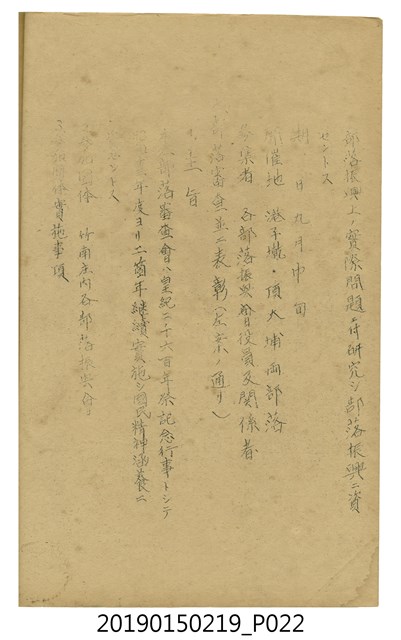 部落振興上ノ實際問題ヲ研究シ部落振興ニ資
セントス
期日 九月中旬
開催地 港子墘・頂大埔両部落
参集者 各部落振興會役員及関係者
部落審査並ニ表彰(左案ノ通リ)
1、主旨
部落審査會ハ皇紀二千六百年ノ記念行事トシテ
年度ヨリ二箇年継續実施シ國民精神涵養ニ
セントス
団体 竹南庄内各部落振興会
3、審査実施事項
20190150219_P022